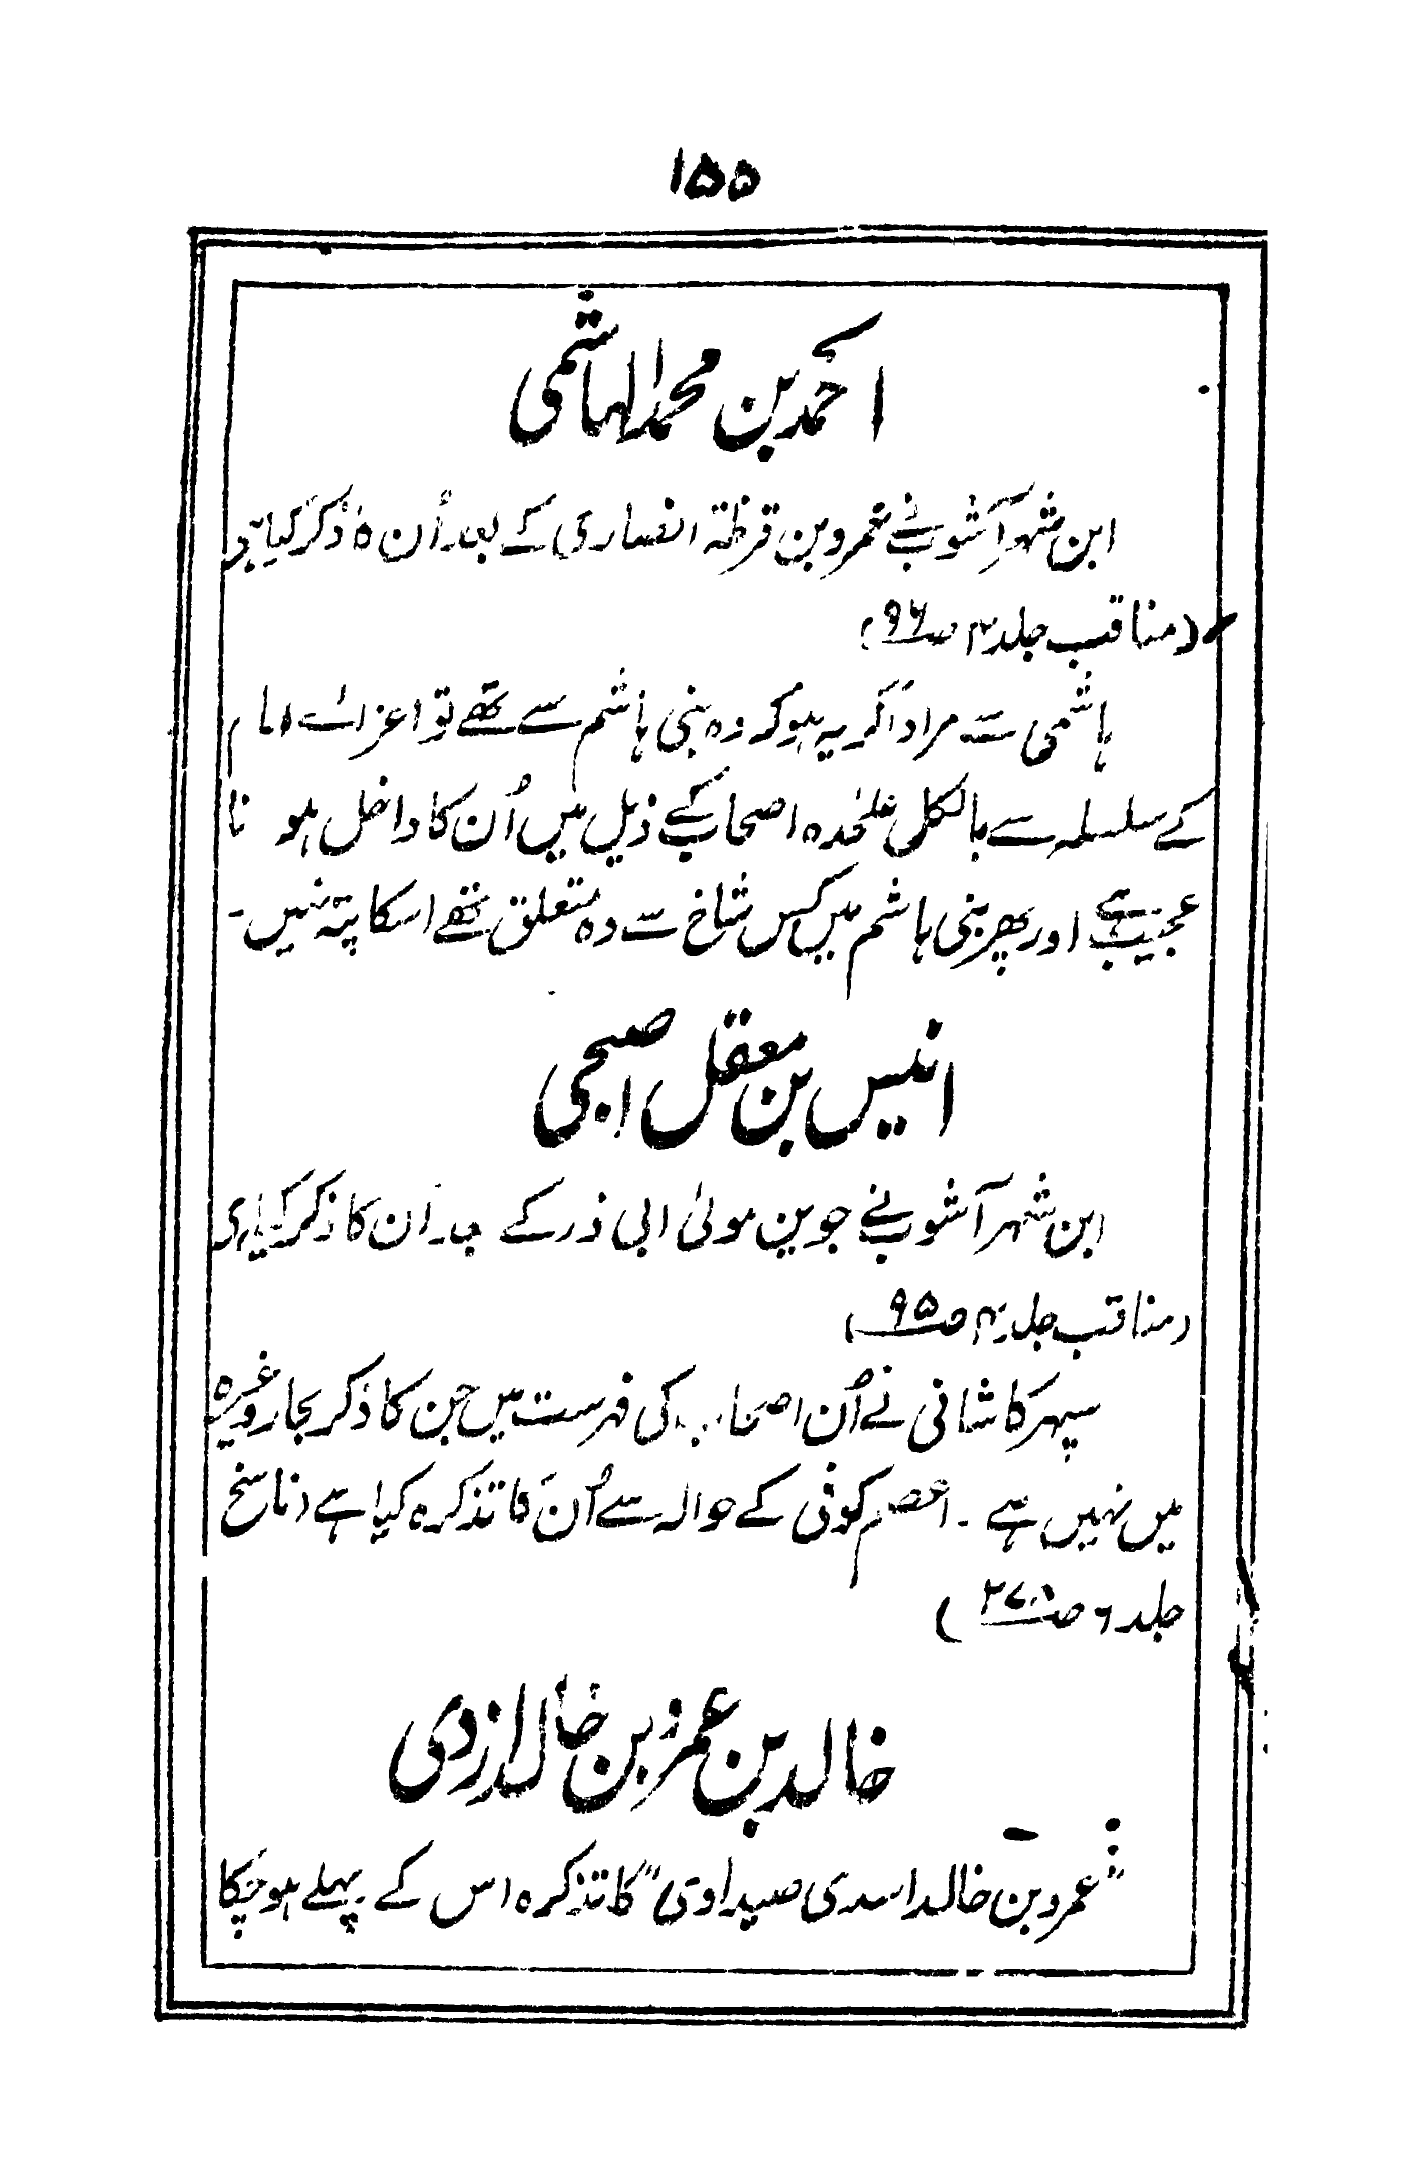 ۱۵۵
احمد بن محمد الہاشمی
ابن شہر آشوب نے عمرو بن قرظۃ انصاری کے بعد اُن کا ذکر کیا ہے
(مناقب جلد ۴ ص ۹۶)
ہاشمی سے مراد اگر یہ ہو کہ وہ بنی ہاشم سے تھے تو اعزائے امام
کے سلسلہ سے بالکل علٰحدہ اصحاب کے ذیل میں اُن کا داخل ہو نا
عجیب ہے اور پھر بنی ہاشم میں کس شاخ سے وہ متعلق تھے اسکا پتہ نہیں۔
انیس بن معقل اصبحی
ابن شہر آشوب نے جوین مولیٰ ابی ذر کے بعد اُن کا ذکر کیا ہی
(مناقب جلد ۴ ص ۹۵)
سپہر کاشانی نے اُن اصحاب کی فہرست میں جن کا ذکر بحار وغیرہ
میں نہیں ہے ۔ اعصم کوفی کے حوالہ سے اُن کا تذکرہ کیا ہے (ناسخ
جلد ۶ ص)
خالد بن عمرو بن خالد ازدی
"عمرو بن خالد اسدی صیداوی" کا تذکرہ اس کے پہلے ہو چکا